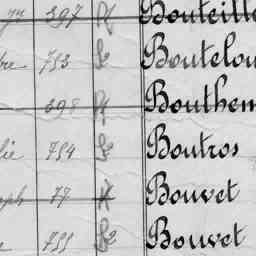 397 Bouteill
753 Boutelou
398 Bouthem
754 Boutros
77 Bouvet
755 Bouvet